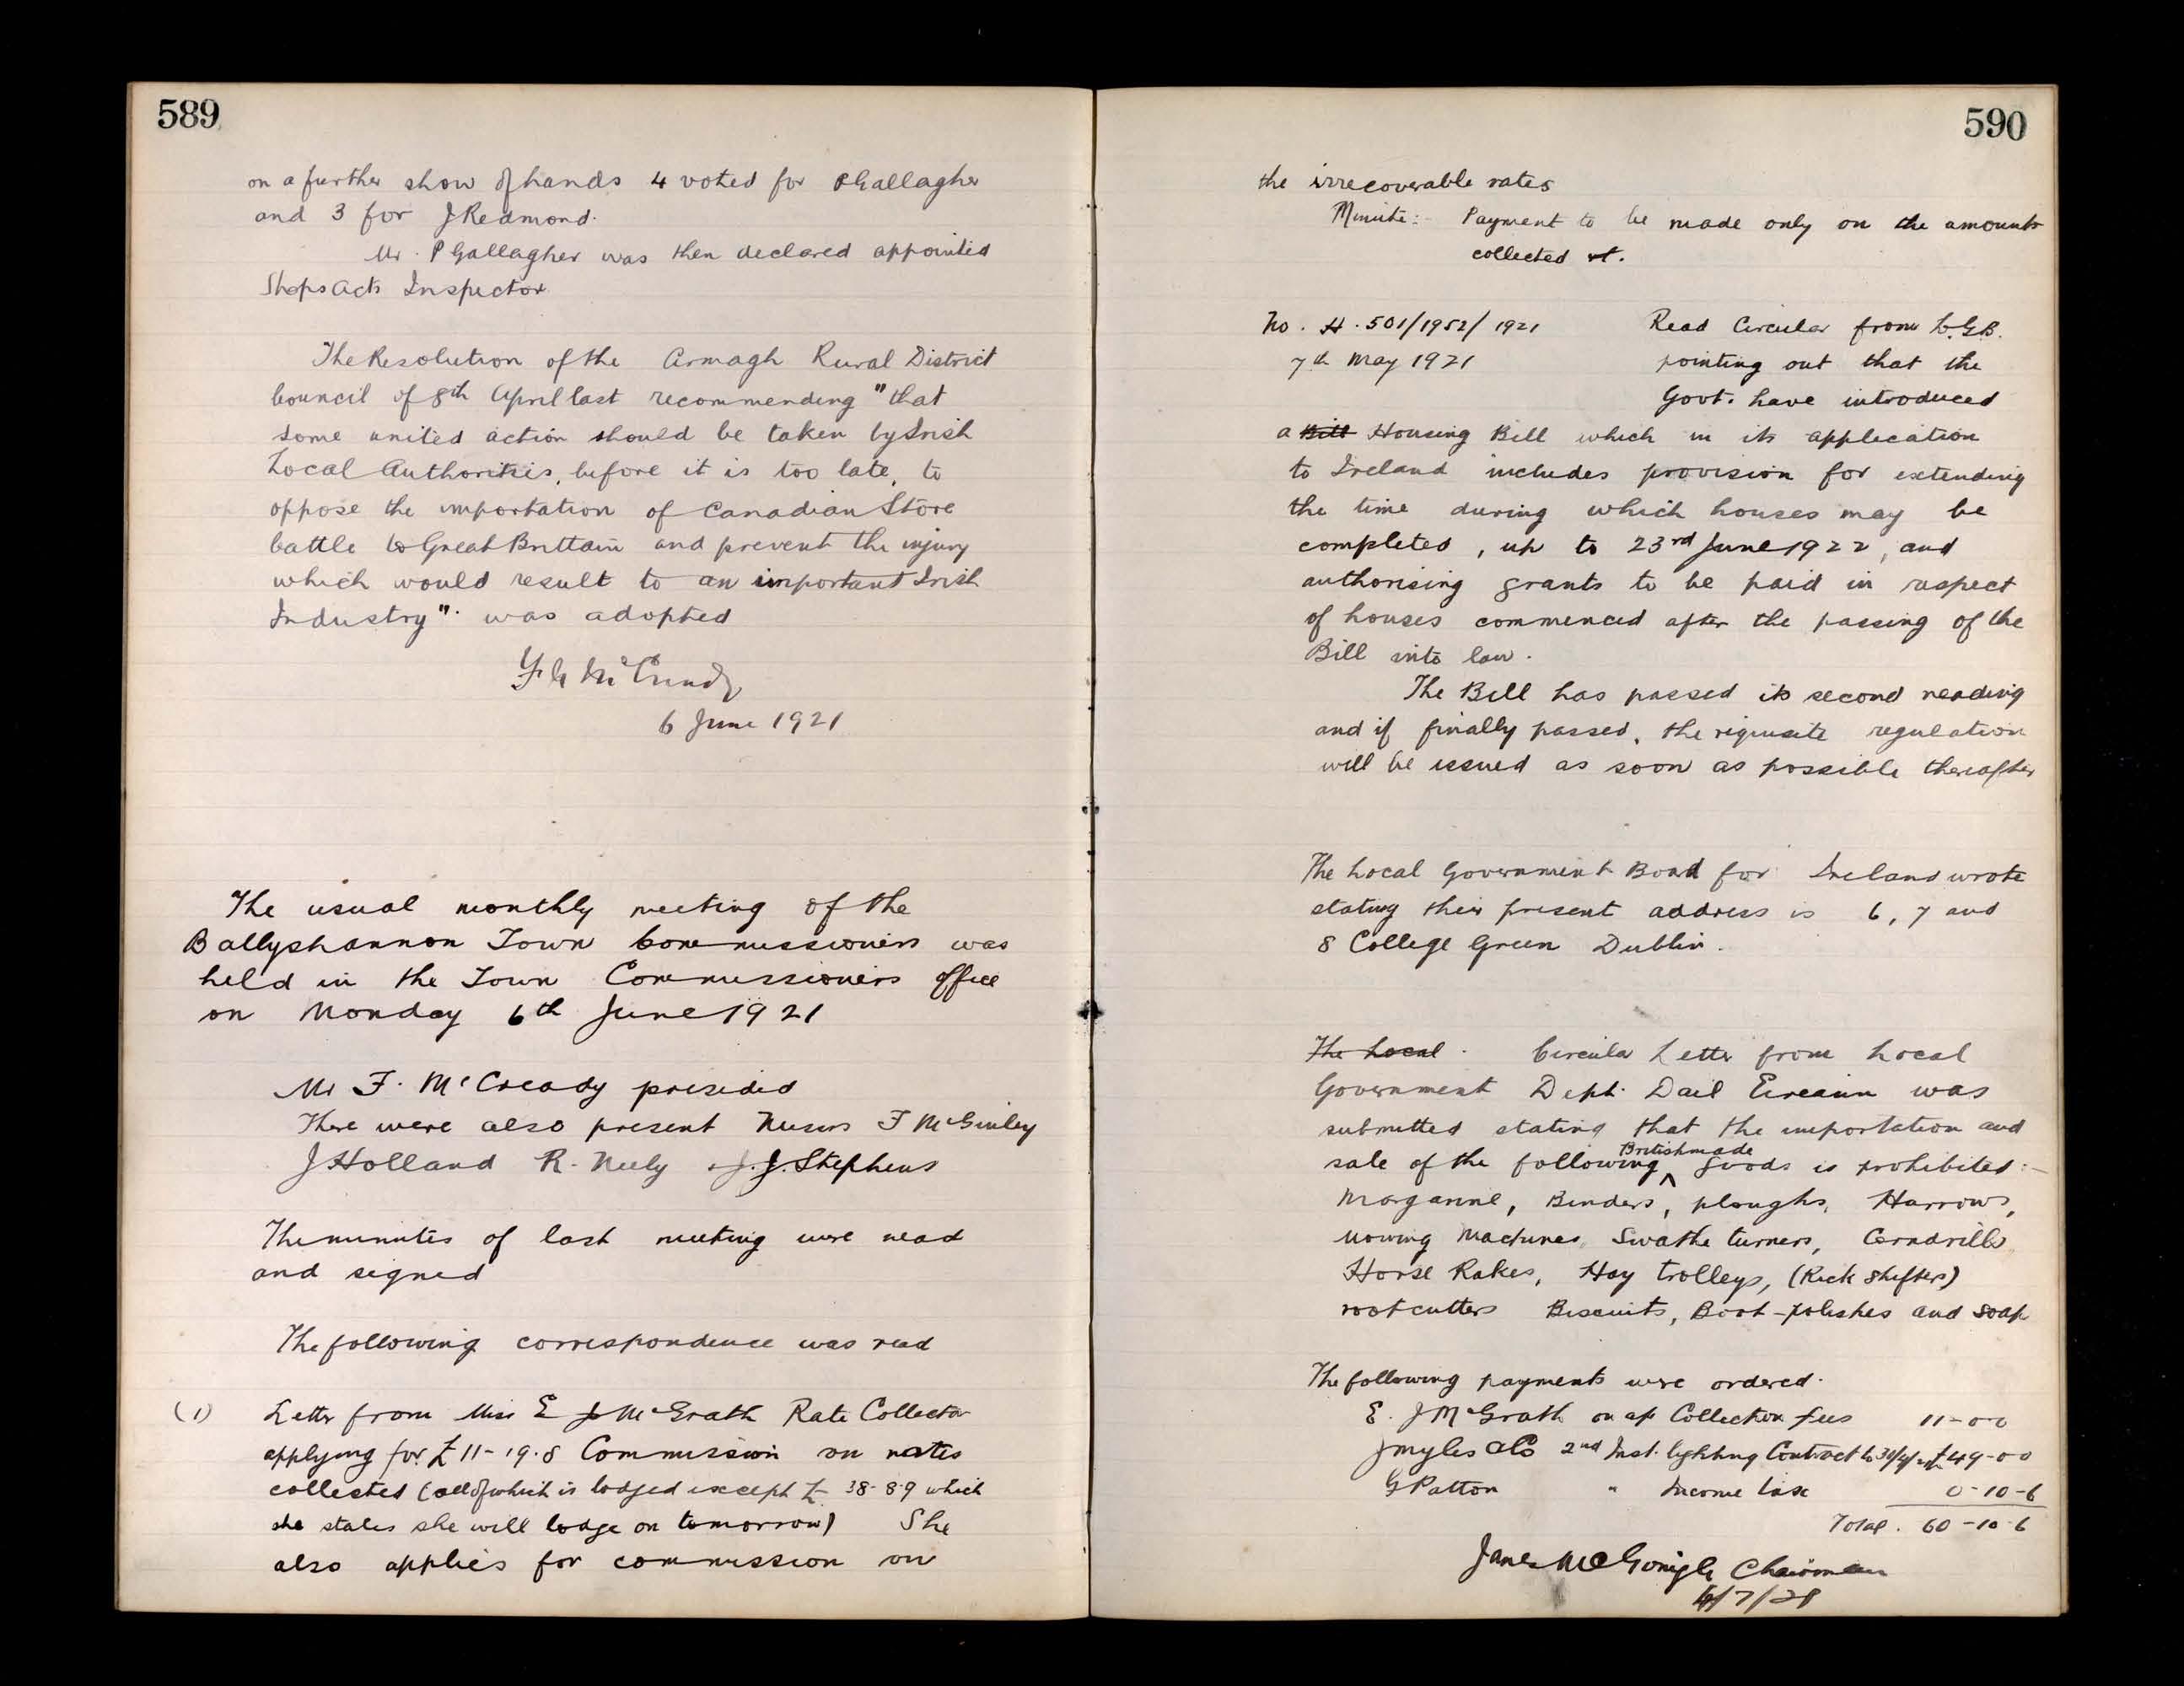 589
on a further show of hands 4 voted for P Gallagher
and 3 for J Redmond.
Mr. P Gallagher was then declared appointed
Shops Acts Inspector
The Resolution of the Armagh Rural District
Council of 8th April last recommending "that
some united action should be taken by Irish
Local Authorities, before it is too late, to
oppose the importation of Canadian Store
Cattle to Great Brittain and prevent the injury
which would result to an important Irish
Industry". was adopted
6 June 1921
The usual monthly meeting of the
Ballyshannon Town Commissioners was
held in the Town Commissioners office
on Monday 6th June 1921
Mr F. McCready presided
There were also present Messrs F McGinley
J Holland R. Neely & J. J. Stephens
The minutes of last meeting were read
and signed
The following correspondence was read
(1) Letter from Miss E J McGrath Rate Collector
applying for £11-19.8 Commission on rates
collected (all of which is lodged except £ 38-8-9 which
she states she will lodge on tomorrow) She
also applies for commission on
590
the irrecoverable rates
Minute:- Payment to be made only on the amounts
collected
No. H. 501/1952/1921 Read Circular from L.G.B.
7th May 1921 pointing out that the
Govt. have introduced
a Bill Housing Bill which in its application
to Ireland includes provision for extending
the time during which houses may be
completed, up to 23rd June 1922, and
authorising grants to be paid in respect
of houses commenced after the passing of the
Bill into law.
The Bill has passed its second reading
and if finally passed, the requisite regulation
will be issued as soon as possible thereafter
The Local Government Board for Ireland wrote
stating their present address is 6, 7 and
8 College Green Dublin.
The Local. Circular Letter from Local
Government Dept. Dail Eireann was
submitted stating that the importation and
sale of the following British made goods is prohibited:-
Margarine, Binders, ploughs, Harrows,
Mowing Machines, Swathe turners, Corndrills
Horse Rakes, Hay trolleys, (Rick Shifters)
rootcutters Biscuits, Boot-polishes and soap
The following payments were ordered.
E. J McGrath on a/c Collection fees 11-0-0
J Myles & Co 2nd Inst. lighting Contract to £49-0-0
G Patton " Income tax 0-10-6
Total. 60-10-6
James McGonigle Chairman